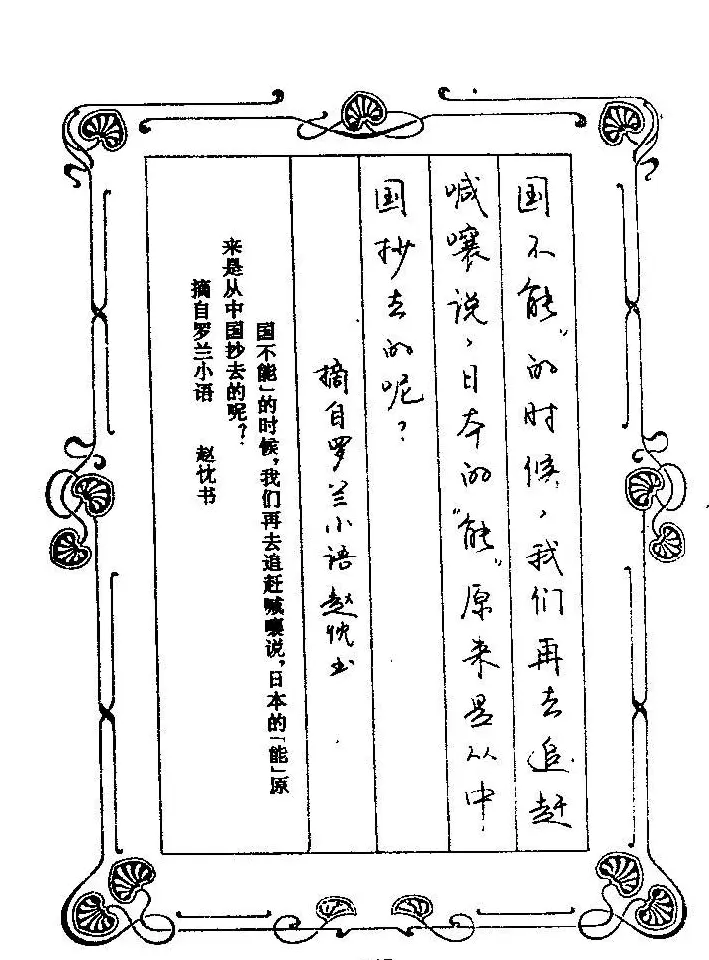 国不能”的时候，我们再去追赶
喊嚷说，日本的“能”原来是从中
国抄去的呢？
摘自罗兰小语 赵忱书
国不能」的时候，我们再去追赶喊嚷说，日本的「能」原
来是从中国抄去的呢？
摘自罗兰小语 赵忱书